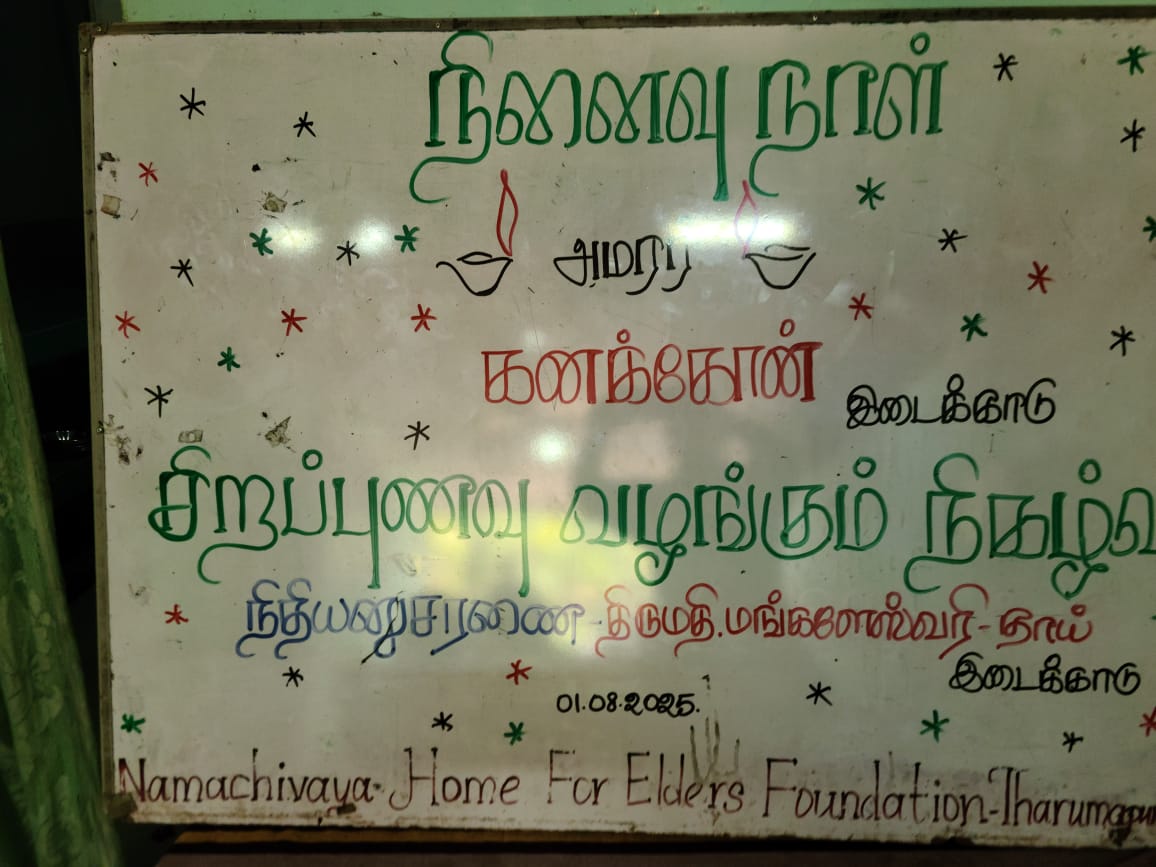 நினைவு நாள்
அமரர்
கனக்கோன்
இடைக்காடு
சிறப்புணவு வழங்கும்
நிதியனுசரணை - திருமதி. மங்களேஸ்வரி - தாய்
இடைக்காடு
01.08.2025.
Namachivaya - Home For Elders Foundation -